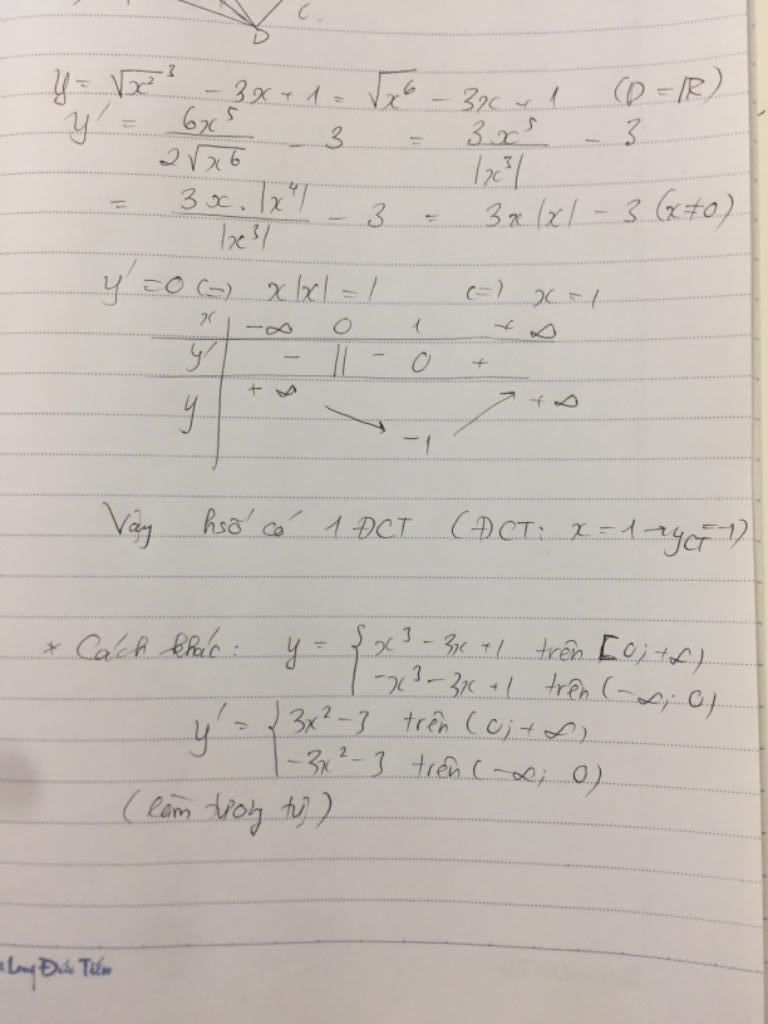 C.
D
y = √x²³ - 3x + 1 = √x⁶ - 3x + 1 (D = ℝ)
y' = 6x⁵ / 2√x⁶ - 3 = 3x⁵ / |x³| - 3
= 3x.|x⁴| / |x³| - 3 = 3x|x| - 3 (x≠0)
y' = 0 (=) x|x| = 1 (=) x = 1
x | -∞ 0 1 +∞
y' | - || - 0 +
y | +∞ ↘ -1 ↗ +∞
Vậy hsố có 1 ĐCT (ĐCT: x = 1 → y_CT = -1)
* Cách khác: y = { x³ - 3x + 1 trên [0; +∞)
-x³ - 3x + 1 trên (-∞; 0)
y' = { 3x² - 3 trên (0; +∞)
-3x² - 3 trên (-∞; 0)
(làm tương tự)
Long Đức Tiến